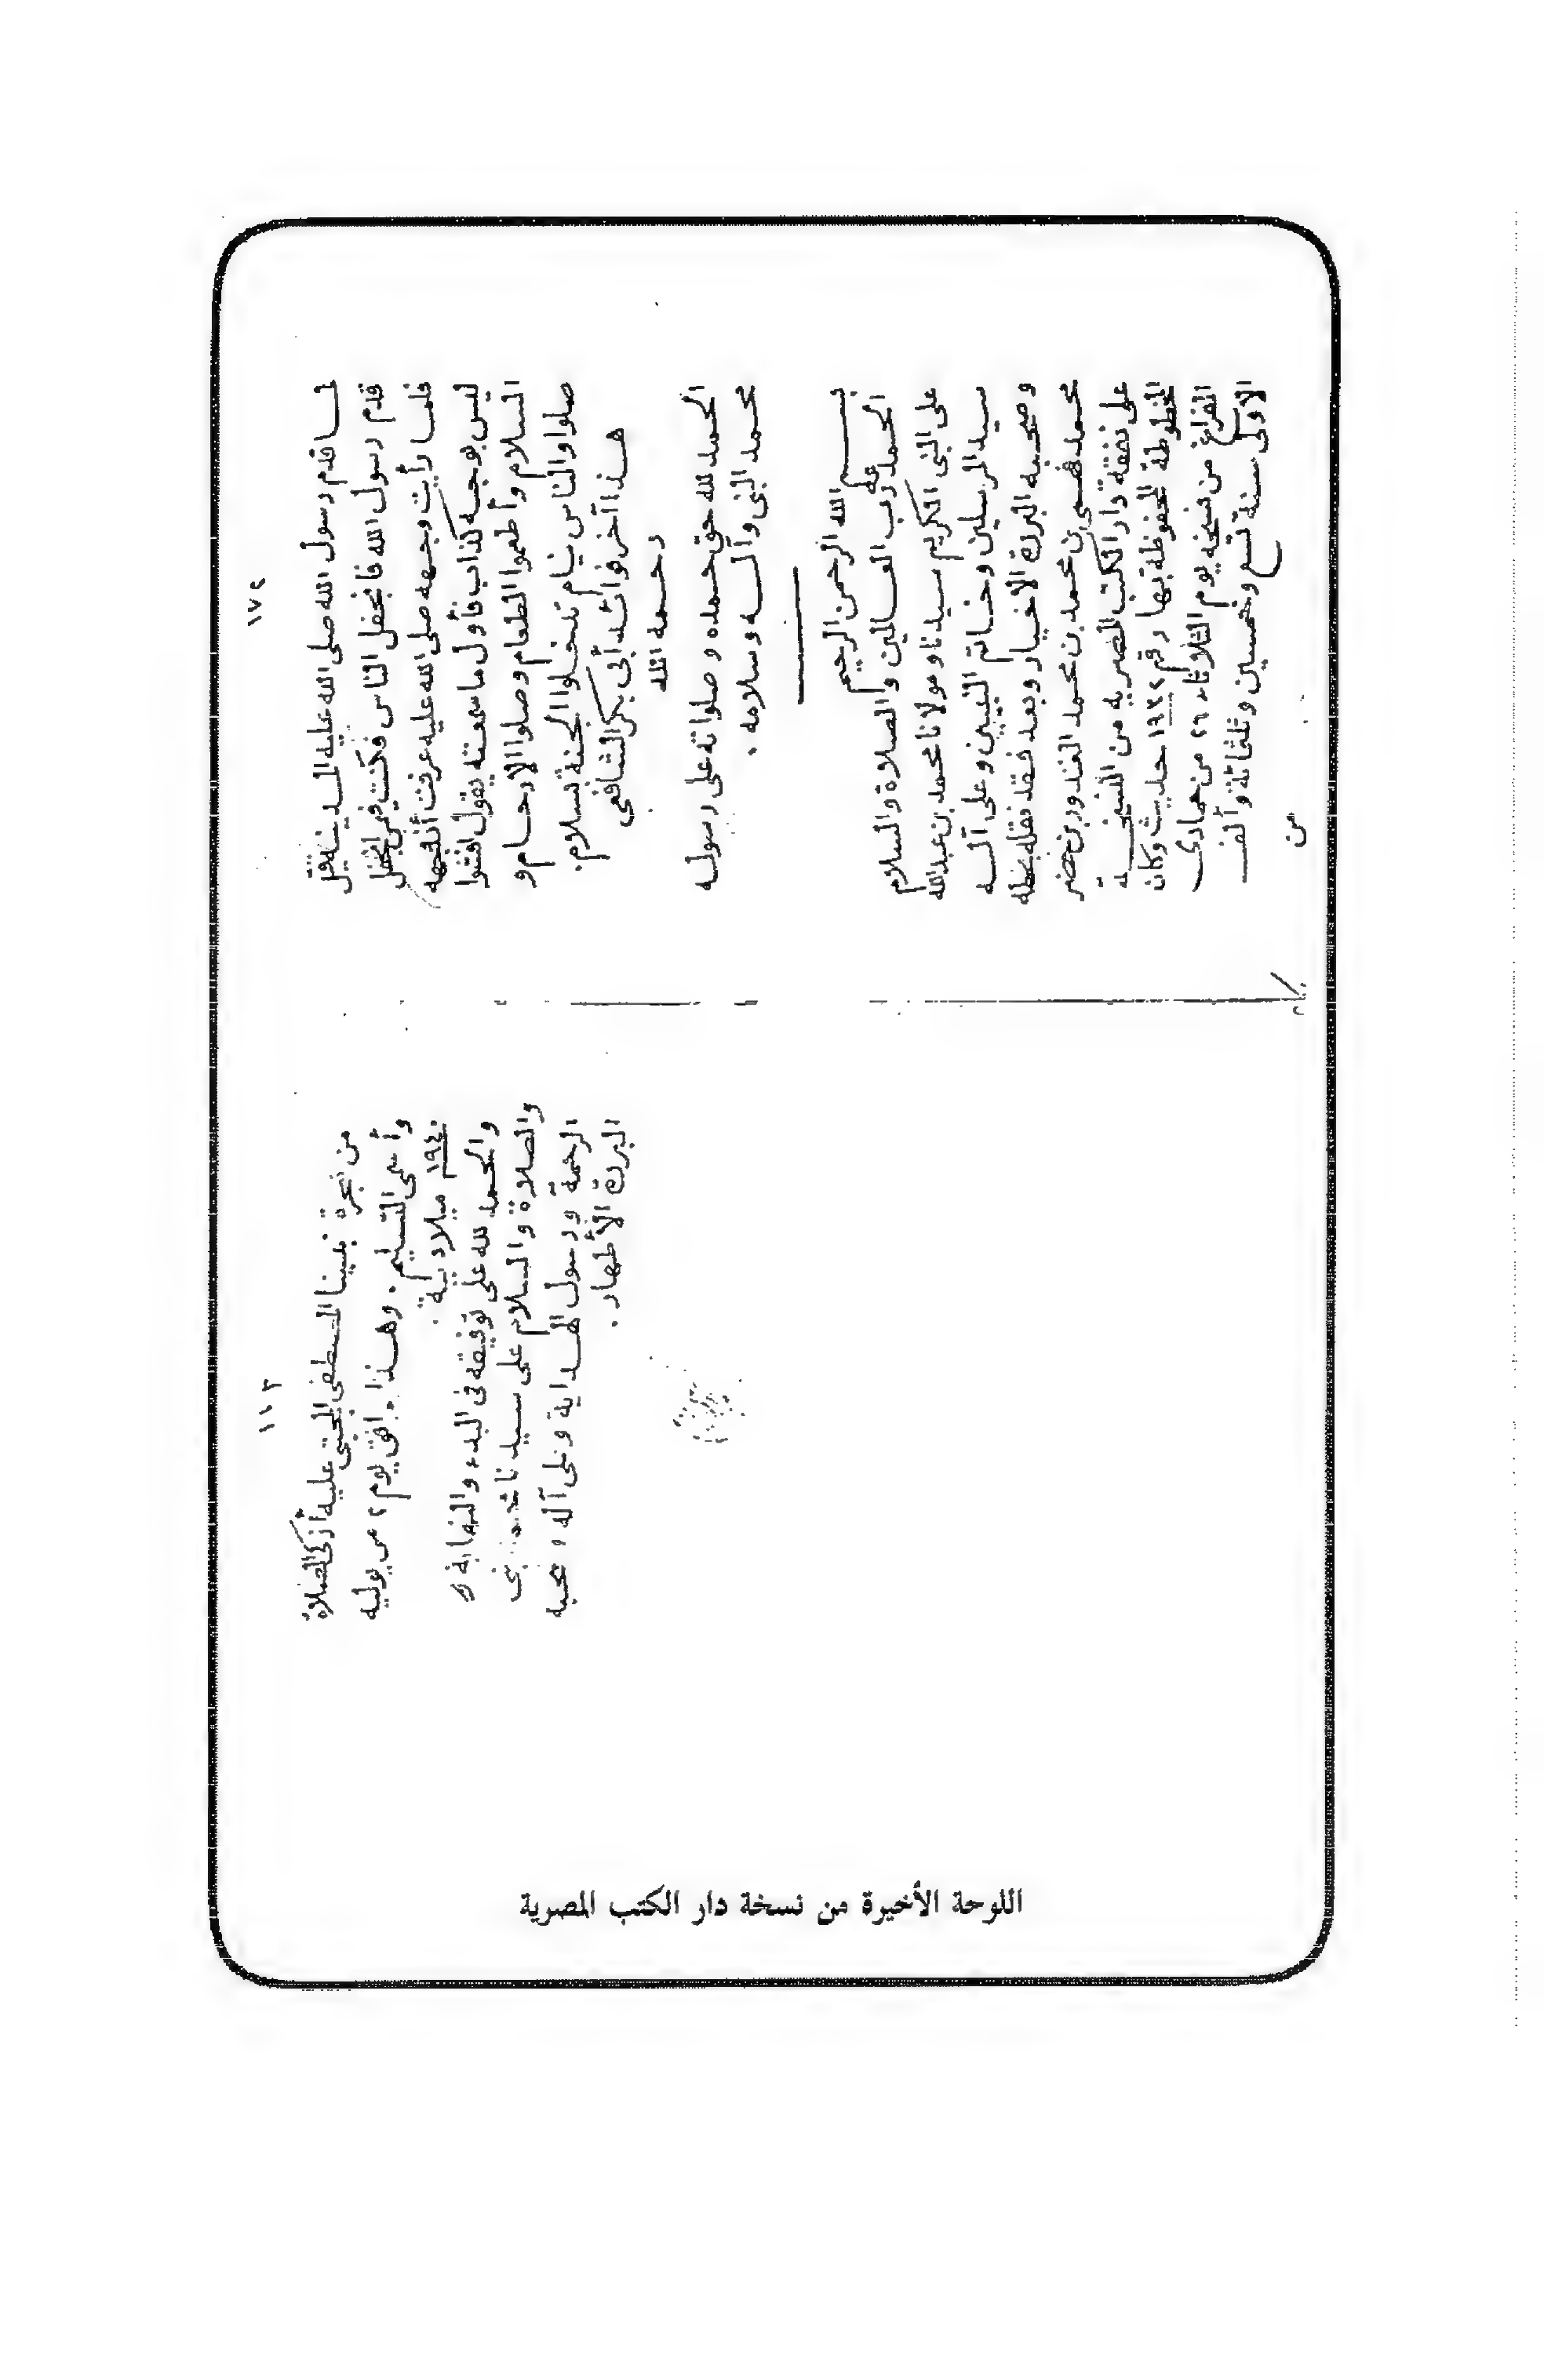 ١٧٢
لما قدم رسول الله صلى الله عليه المدينة قيل
قدم رسول الله فانجفل الناس فكنت فيمن انجفل
فلما رأيت وجهه صلى الله عليه عرفت أن وجهه
ليس بوجه كذاب فأول ما سمعته يقول افشوا
السلام وأطعموا الطعام وصلوا الارحام و
صلوا والناس نيام تدخلوا الجنة بسلام.
هذا آخر فوائد أبى بكر الشافعى
رحمه الله
الحمد لله حق حمده وصلواته على رسوله
محمد النبى وآله وسلامه .
بسم الله الرحمن الرحيم
الحمد لله رب العالمين والصلاة والسلام
على النبى الكريم سيدنا ومولانا محمد بن عبدالله
سيد المرسلين وخاتم النبيين وعلى آله
وصحبه البررة الاخيار وبعد فقد نقله بخطه
محمد فهمى بن محمد بن محمد الغندور بن خضر
على نفقة دار الكتب المصرية من النسخة
المخطوطة المحفوظة بها رقم ١٩٣٢ حديث وكان
الفراغ من نسخه يوم الثلاثاء ٢٦ من جمادى
الاولى سنة تسع وخمسين وثلثمائة وألف
من
١١٣
من هجرة نبينا المصطفى المجتبى عليه أزكى الصلاة
وأسمى التسليم . وهذا وافق يوم ٢ من يوليه
١٩٤٠ ميلادية .
والحمد لله على توفيقه فى البدء والنهاية
والصلاة والسلام على سيدنا محمد نبى
الرحمة ورسول الهداية وعلى آله وصحبه
البررة الأطهار .
اللوحة الأخيرة من نسخة دار الكتب المصرية